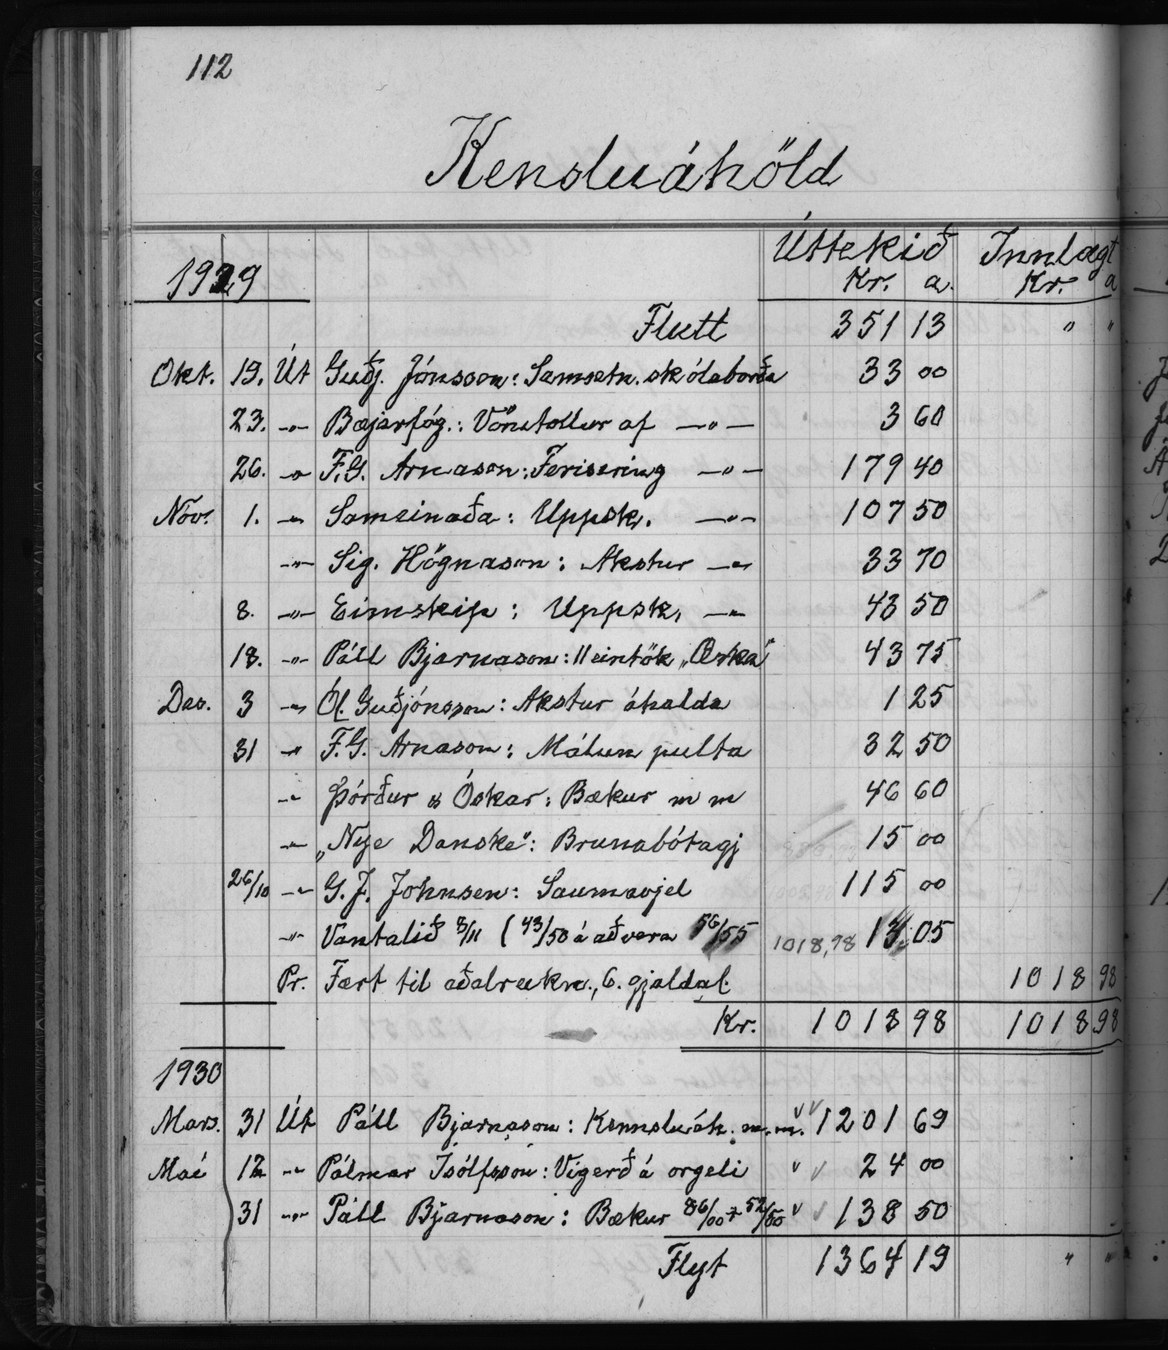 112
Kensluáhöld
Úttekið Innlagt
1929 Kr. a. Kr. a
Flutt 351 13 " "
Okt. 19. Út Guðj. Jónsson: Samsetn. skólaborða 33 00
23. -"- Bæjarfóg.: Vörutollur af -"- 3 60
26. -"- F.G. Arnason: Ferisering -"- 179 40
Nóv. 1. -"- Sameinaða: Uppsk. -"- 107 50
-"- Sig. Högnason: Akstur -"- 33 70
8. -"- Eimskip: Uppsk. -"- 43 50
18. -"- Páll Bjarnason: 11 eintök „Æska" 43 75
Des. 3 -"- Ól. Guðjónsson: Akstur áhalda 1 25
31 -"- F.G. Arnason: Málun pulta 32 50
-"- Þórður & Óskar: Bækur m m 46 60
-"- „Nye Danske": Brunabótagj 15 00
26/10 -"- G.J. Johnsen: Saumavjel 115 00
-"- Vantalið 3/11 (43/50 á að vera 56/55 1018,98 13 05
Pr. Fært til aðalreikn., 6. gjaldal. 1018 98
Kr. 1018 98 1018 98
1930
Mars. 31 Út Páll Bjarnason: Kennsluáh. m.m. 1201 69
Maí 12 -"- Pálmar Ísólfsson: Vigerð á orgeli 24 00
31 -"- Páll Bjarnason: Bækur 86/00 + 52/50 138 50
Flyt 1364 19 " "